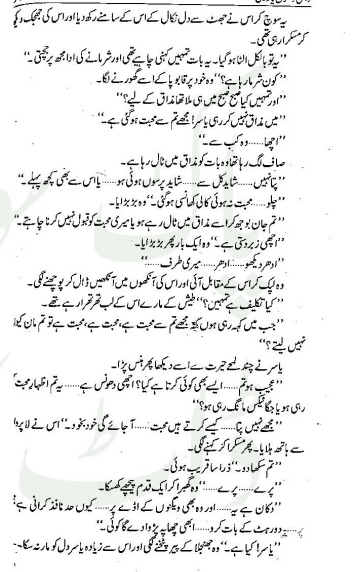 یہ سوچ کر اس نے جھٹ سے دل نکال کے اس کے سامنے رکھ دیا اور اس کی جھجک دیکھ
کر مسکرا رہی تھی۔
”یہ تو بالکل الٹا ہو گیا۔ یہ بات تمہیں کہنی چاہیے تھی اور شرمانے کی ادا مجھ پر جچتی۔“
”کون شرما رہا ہے؟“ وہ خود پر قابو پا کے اسے گھورنے لگا۔
”اور تمہیں کیا صبح صبح میں ہی ملا تھا مذاق کے لیے؟“
”میں مذاق نہیں کر رہی یاسر! مجھے تم سے محبت ہو گئی ہے۔“
”اچھا...... وہ کب سے۔“
صاف لگ رہا تھا وہ بات کو مذاق میں ٹال رہا ہے۔
”پتا نہیں...... شاید کل سے...... شاید پرسوں ہوئی ہو...... یا اس سے بھی کچھ پہلے۔“
”چلو...... محبت نہ ہوئی کالی کھانسی ہو گئی۔“ وہ بڑبڑایا۔
”تم جان بوجھ کر اسے مذاق میں ٹال رہے ہو یا میری محبت کو قبول نہیں کرنا چاہتے۔“
”اچھی زبردستی ہے۔“ وہ ایک بار پھر بڑبڑایا۔
”ادھر دیکھو...... ادھر...... میری طرف......“
وہ لپک کر اس کے مقابل آئی اور اس کی آنکھوں میں آنکھیں ڈال کر پوچھنے لگی۔
”کیا تکلیف ہے تمہیں؟“ طیش کے مارے اس کے لب تھرتھرا رہے تھے۔
”جب میں کہہ رہی ہوں کہ مجھے تم سے محبت ہے، محبت ہے، محبت ہے تو تم مان کیوں
نہیں لیتے؟“
یاسر نے چند لمحے حیرت سے اسے دیکھا پھر ہنس پڑا۔
”عجیب ہو تم...... ایسے بھی کوئی کرتا ہے کیا؟ اچھی دھونس ہے...... یہ تم اظہارِ محبت کر
رہی ہو یا جگا ٹیکس مانگ رہی ہو؟“
”مجھے نہیں پتا...... کیسے کرتے ہیں محبت...... آ جائے گی خود بخود۔“ اس نے لاپروائی
سے ہاتھ ہلایا۔ پھر مسکرا کر کہنے لگی۔
”تم سکھا دو۔“ ذرا سا قریب ہوئی۔
”پرے...... پرے......“ وہ گھبرا کر ایک قدم پیچھے کھسکا۔
”دکان ہے یہ...... اور وہ بھی ویگنوں کے اڈے پر...... کیوں حد نافذ کرانی ہے؟
پر...... دور ہٹ کے بات کرو...... ابھی چھاپہ پڑوا دے گا کوئی۔“
”یاسر! کیا ہے۔“ وہ جھنجلا کے پیر پٹخنے لگی اور اس سے زیادہ یاسر دل کو مار نہ سکا۔